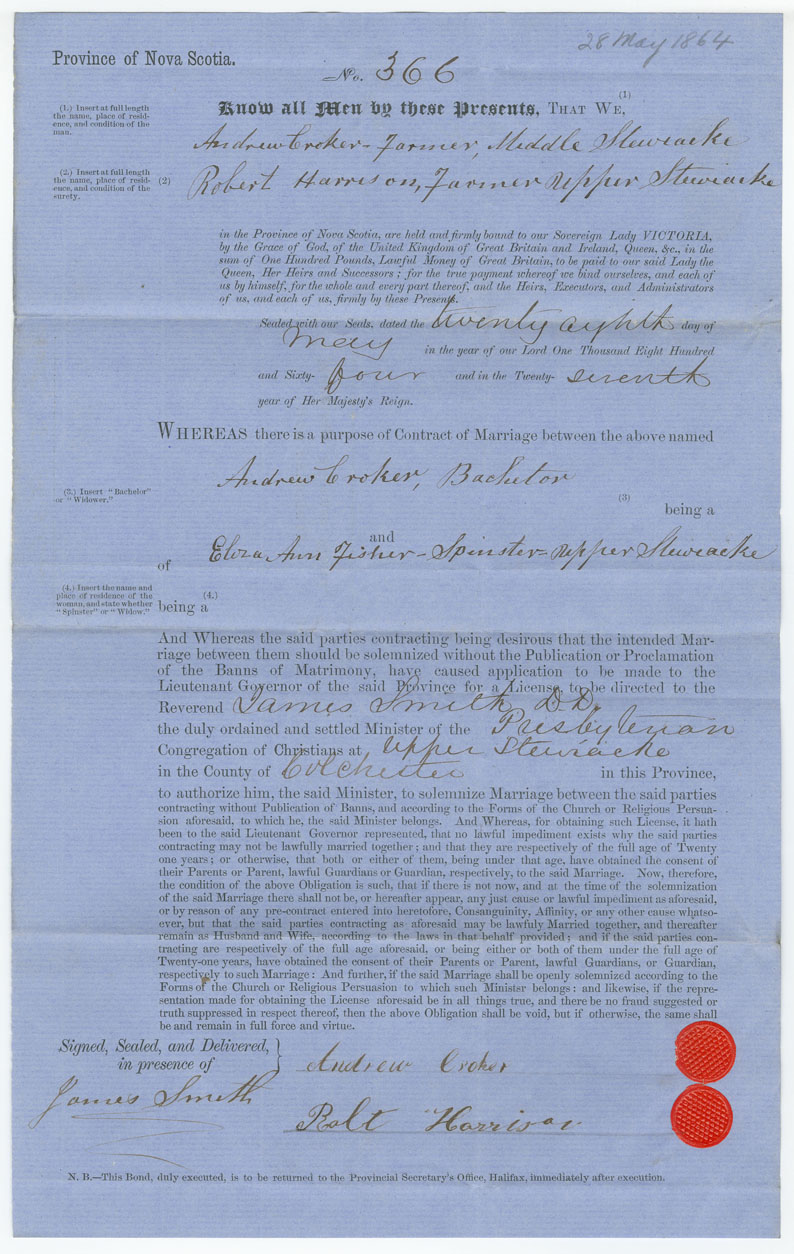 28 May 1864
Province of Nova Scotia.
No. 366
(1)
Know all Men by these Presents, THAT WE,
(1.) Insert at full length
the name, place of resid-
ence, and condition of the
man.
Andrew Croker - Farmer, Middle Stewiacke
(2.) Insert at full length
the name, place of resid-
ence, and condition of the
surety.
(2) Robert Harrison, Farmer Upper Stewiacke
in the Province of Nova Scotia, are held and firmly bound to our Sovereign Lady VICTORIA,
by the Grace of God, of the United Kingdom of Great Britain and Ireland, Queen, &c., in the
sum of One Hundred Pounds, Lawful Money of Great Britain, to be paid to our said Lady the
Queen, Her Heirs and Successors; for the true payment whereof we bind ourselves, and each of
us by himself, for the whole and every part thereof, and the Heirs, Executors, and Administrators
of us, and each of us, firmly by these Presents.
Sealed with our Seals, dated the twenty eighth day of
May in the year of our Lord One Thousand Eight Hundred
and Sixty- four and in the Twenty- seventh
year of Her Majesty's Reign.
WHEREAS there is a purpose of Contract of Marriage between the above named
Andrew Croker, Bachelor
(3.) Insert "Bachelor"
or "Widower."
(3)
being a
and
of Eliza Ann Fisher - Spinster - Upper Stewiacke
(4.) Insert the name and
place of residence of the
woman, and state whether
"Spinster" or "Widow."
(4.)
being a
And Whereas the said parties contracting being desirous that the intended Mar-
riage between them should be solemnized without the Publication or Proclamation
of the Banns of Matrimony, have caused application to be made to the
Lieutenant Governor of the said Province for a License, to be directed to the
Reverend James Smith D.D.
the duly ordained and settled Minister of the Presbyterian
Congregation of Christians at Upper Stewiacke
in the County of Colchester in this Province,
to authorize him, the said Minister, to solemnize Marriage between the said parties
contracting without Publication of Banns, and according to the Forms of the Church or Religious Persua-
sion aforesaid, to which he, the said Minister belongs. And Whereas, for obtaining such License, it hath
been to the said Lieutenant Governor represented, that no lawful impediment exists why the said parties
contracting may not be lawfully married together; and that they are respectively of the full age of Twenty
one years; or otherwise, that both or either of them, being under that age, have obtained the consent of
their Parents or Parent, lawful Guardians or Guardian, respectively, to the said Marriage. Now, therefore,
the condition of the above Obligation is such, that if there is not now, and at the time of the solemnization
of the said Marriage there shall not be, or hereafter appear, any just cause or lawful impediment as aforesaid,
or by reason of any pre-contract entered into heretofore, Consanguinity, Affinity, or any other cause whatso-
ever, but that the said parties contracting as aforesaid may be lawfuly Married together, and thereafter
remain as Husband and Wife, according to the laws in that behalf provided; and if the said parties con-
tracting are respectively of the full age aforesaid, or being either or both of them under the full age of
Twenty-one years, have obtained the consent of their Parents or Parent, lawful Guardians, or Guardian,
respectively to such Marriage: And further, if the said Marriage shall be openly solemnized according to the
Forms of the Church or Religious Persuasion to which such Minister belongs: and likewise, if the repre-
sentation made for obtaining the License aforesaid be in all things true, and there be no fraud suggested or
truth suppressed in respect thereof, then the above Obligation shall be void, but if otherwise, the same shall
be and remain in full force and virtue.
Signed, Sealed, and Delivered,
in presence of
Andrew Croker
James Smith
Robt Harrison
N. B.—This Bond, duly executed, is to be returned to the Provincial Secretary's Office, Halifax, immediately after execution.